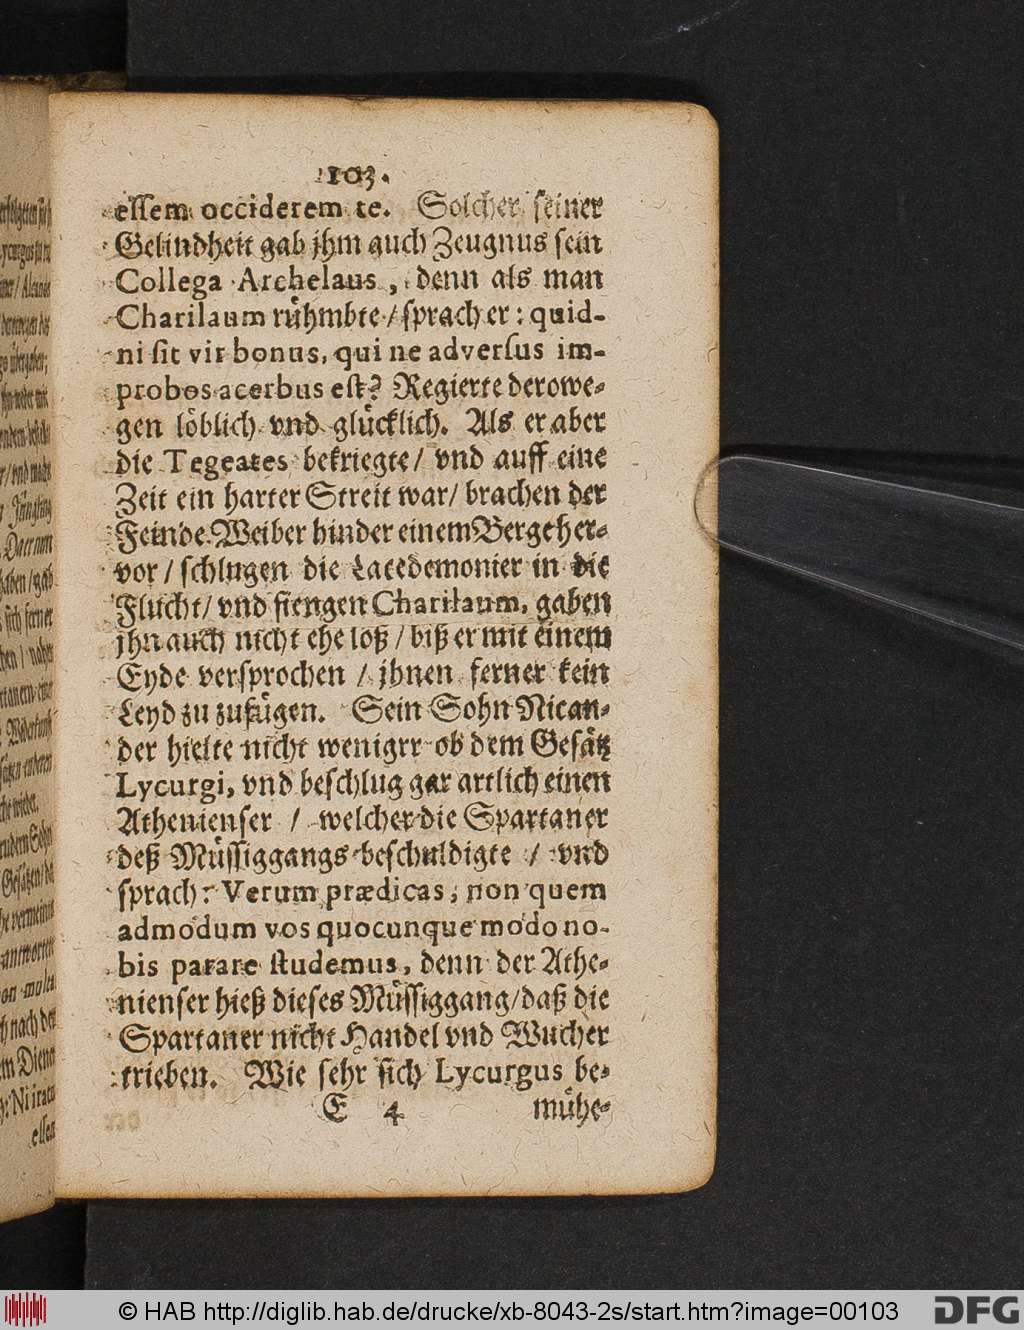 103.
essem occiderem te. Solcher seiner
Gelindheit gab jhm auch Zeugnus sein
Collega Archelaus, denn als man
Charilaum rühmbte / sprach er: quid-
ni sit vir bonus, qui ne adversus im-
probos acerbus est? Regierte derowe-
gen löblich vnd glücklich. Als er aber
die Tegeates bekriegte / vnd auff eine
Zeit ein harter Streit war / brachen der
Feinde Weiber hinder einem Berge her-
vor / schlugen die Lacedemonier in die
Flucht / vnd fiengen Charilaum, gaben
jhn auch nicht ehe loß / biß er mit einem
Eyde versprochen / jhnen ferner kein
Leyd zu zufügen. Sein Sohn Nican-
der hielte nicht wenigrr ob dem Gesätz
Lycurgi, vnd beschlug gar artlich einen
Athenienser / welcher die Spartaner
deß Müssiggangs beschuldigte / vnd
sprach: Verum prædicas, non quem
admodum vos quocunque modo no-
bis parare studemus, denn der Athe-
nienser hieß dieses Müssiggang / daß die
Spartaner nicht Handel vnd Wucher
trieben. Wie sehr sich Lycurgus be-
E 4 mühe-
© HAB http://diglib.hab.de/drucke/xb-8043-2s/start.htm?image=00103
DFG